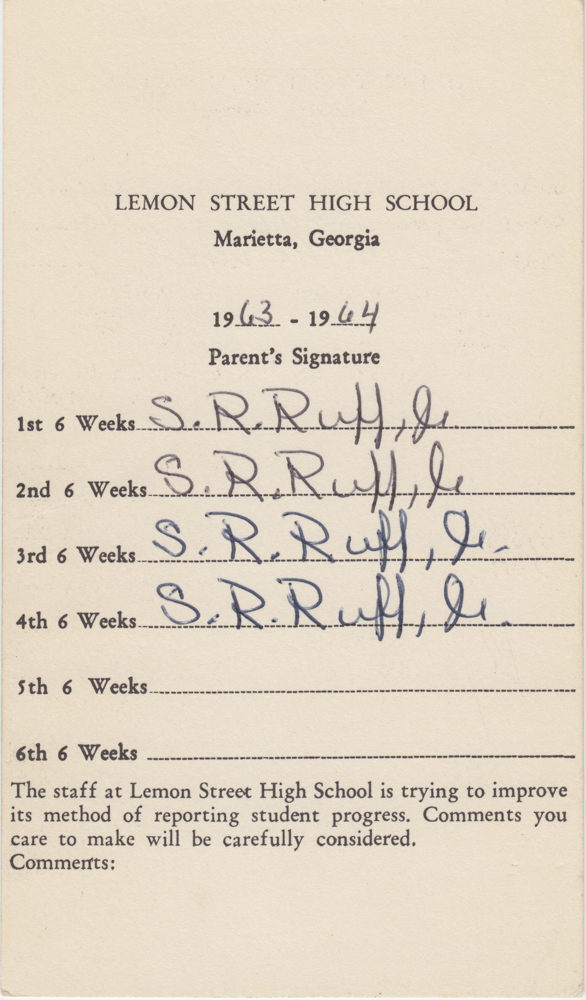 LEMON STREET HIGH SCHOOL
Marietta, Georgia
1963 - 1964
Parent's Signature
1st 6 Weeks S. R. Ruff, Jr
2nd 6 Weeks S. R. Ruff, Jr
3rd 6 Weeks S. R. Ruff, Jr.
4th 6 Weeks S. R. Ruff, Jr.
5th 6 Weeks
6th 6 Weeks
The staff at Lemon Street High School is trying to improve
its method of reporting student progress. Comments you
care to make will be carefully considered.
Comments: